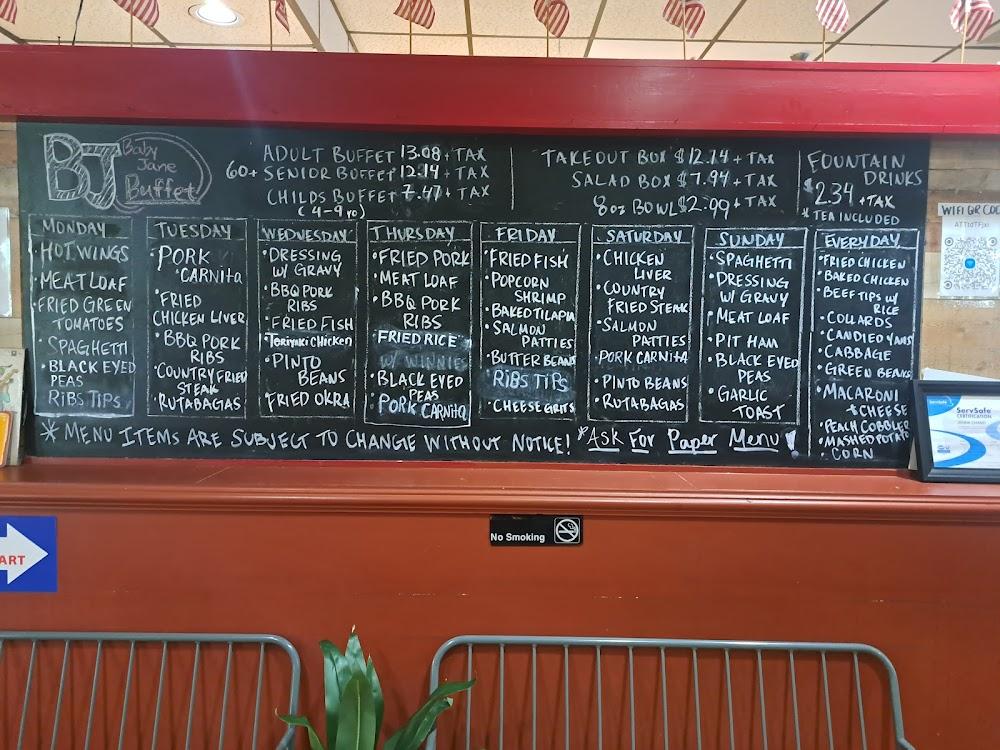 BJ Baby
Jane
Buffet
ADULT BUFFET 13.08 + TAX
60+ SENIOR BUFFET 12.14 + TAX
CHILDS BUFFET 7.47 + TAX
(4-9 yo)
TAKEOUT BOX $12.14 + TAX
SALAD BOX $7.94 + TAX
8oz BOWL $2.99 + TAX
FOUNTAIN
DRINKS
$2.34 + TAX
* TEA INCLUDED
MONDAY
• HOT WINGS
• MEAT LOAF
• FRIED GREEN
TOMATOES
• SPAGHETTI
• BLACK EYED
PEAS
RIBS TIPS
TUESDAY
• PORK
CARNITA
• FRIED
CHICKEN LIVER
• BBQ PORK
RIBS
• COUNTRY FRIED
STEAK
• RUTABAGAS
WEDNESDAY
• DRESSING
W/ GRAVY
• BBQ PORK
RIBS
• FRIED FISH
• TERIYAKI CHICKEN
• PINTO
BEANS
• FRIED OKRA
THURSDAY
• FRIED PORK
• MEAT LOAF
• BBQ PORK
RIBS
FRIED RICE
W/ WINNIES
• BLACK EYED
PEAS
• PORK CARNITA
FRIDAY
• FRIED FISH
• POPCORN
SHRIMP
• BAKED TILAPIA
• SALMON
PATTIES
• BUTTER BEANS
RIBS TIPS
• CHEESE GRITS
SATURDAY
• CHICKEN
LIVER
• COUNTRY
FRIED STEAK
• SALMON
PATTIES
• PORK CARNITA
• PINTO BEANS
• RUTABAGAS
SUNDAY
• SPAGHETTI
• DRESSING
W/ GRAVY
• MEAT LOAF
• PIT HAM
• BLACK EYED
PEAS
• GARLIC
TOAST
EVERYDAY
• FRIED CHICKEN
• BAKED CHICKEN
• BEEF TIPS W/
RICE
• COLLARDS
• CANDIED YAMS
• CABBAGE
• GREEN BEANS
• MACARONI
& CHEESE
• PEACH COBBLER
• MASHED POTATO
• CORN
* MENU ITEMS ARE SUBJECT TO CHANGE WITHOUT NOTICE! * ASK FOR PAPER MENU!
WIFI QR COD
ServSafe
CERTIFICATION
No Smoking
ART